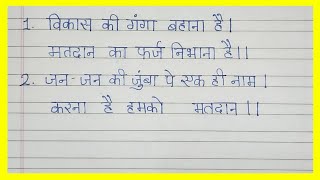 1. विकास की गंगा बहाना है।
मतदान का फर्ज निभाना है।।
2. जन-जन की जुंबा पे एक ही नाम।
करना है हमको मतदान।।